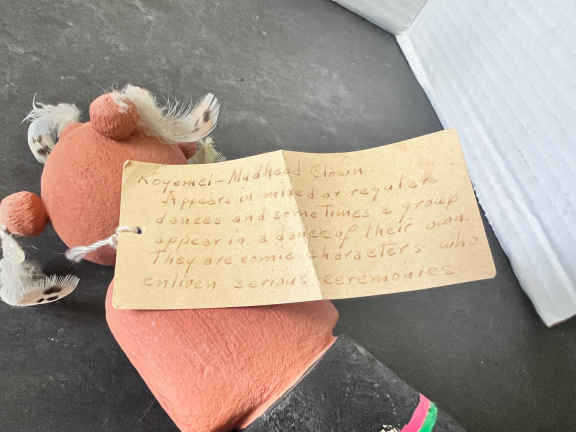 Koyemci - Mudhead Clown
Appears in mixed or regular
dances and sometimes a group
appear in a dance of their own.
They are comic characters who
enliven serious ceremonies